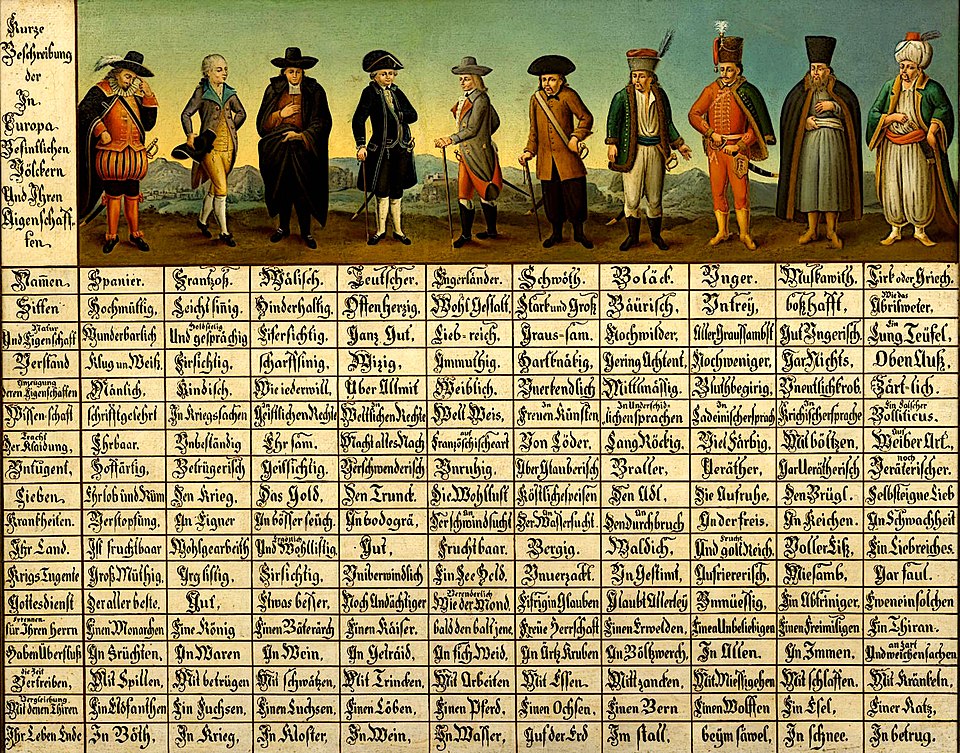 Kurze
Beschreibung
der
In
Europa
Befintlichen
Völckern
Und Ihren
Aigenschaff-
ten.
Namen. Spanier. Frantzoß. Wälisch. Teutscher. Engerländer. Schwöth. Boläck. Unger. Muskawith. Tirk oder Griech.
Sitten Hochmüttig, Leichtsinig, Hinderhaltig, Offenherzig, Wohl Gestalt, Starck und Groß Bäurisch, Untrey, boßhafft, Wie das Abrilweter,
Und Natur Eigenschaft Wunderbarlich Und Holdseelig gesprächig Eifersichtig, Ganz Gut, Lieb-reich, Graus-sam, Nochwilder, Aller Graussambst Gut Ungerisch, Ein Lung Teüfel,
Verständ Klug un Weiß, Firsichtig, scharffsinig, Wizig, Ammuthig, Hartknäbig, Gering Achtent, Nochweniger, Gar Nichts, Oben Auß,
Anzeugung deren Eigenschaften Mänlich, Kindisch, Wie iederwill, Über Allmit Weiblich, Unerkendlich Mittlmässig, Bluthbegirig, Unentlichkrob, Zärt-lich.
Wissenschaft schrifftgelehrt In Kriegsachen Geistlichen Rechte In Weltlichen Rechte Welt Weis, In Freuen Künsten In Underschid-lichen sprachen In Ladeinischersprach In Krichischersprache Ein Falscher Bolliticus.
Tracht Der Klaidung, Ehrbaar. Unbeständig Ehrsam, Macht alles Nach auf Französchischeart Von Löder, Lang Röckig, Viel Färbig, Mit böltzen, Auf Weiber Art,
Untugent, Hoffärtig, Betrügerisch Geilsichtig, Verschwenderisch Unruhig, Aber Glauberisch Braller, Veräther, Gar Verätherisch noch Veräterischer.
Lieben. Ehrlob und Rüm Den Krieg, Das Gold, Den Trunck, Die Wohllust Köstlichespeisen Den Adl, Die Aufruhe, Den Brügl, Selbsteigne Lieb
Krankheiten. Verstopfung, An Eigner An bösser seüch, An bodogrä, An Der schwindsucht An Der Wassersucht, An Den durchbruch An der freis, An Keichen, An Schwachheit
Ihr Land. Ist fruchtbaar Wohlgearbeith Und Ergötzlich Wohllistig, Gut, Fruchtbaar. Bergig. Waldich. Und Frucht golt Reich. Voller Eiß, Ein Liebreiches
Krigs Tugente Groß Müthig, Arg listig, Firsichtig, Uniberwindlich Ein See Held, Unverzackt. Un Gestimt, Aufriererisch, Miesamb, Gar faul.
Gottesdienst Der aller beste, Gut, Etwas besser, Noch Andächtiger Verenderlich Wie der Mond, Eifrig in Glauben Glaubt Allerley Unmüessig, Ein Abtriniger, Eweneinsolchen
Erkennen für Ihren herrn Einen Monarchen Eine König Einen Bäterärch Einen Käiser, bald den bald jene, Freüe Herrschaft Einen Erwelden, Einen Unbeliebigen Einen Freimiligen Ein Thiran.
Haben Überfluß An Früchten, An Waren An Wein, An Geträid, An fich Weid, An Ärtz Kruben An Böltzwerch, In Allen. An Immen, an zart Und weichen sachen,
die Zeit Vertreiben, Mit Spillen, Mit betrügen Mit schwätzen, Mit Trincken, Mit Arbeiten Mit Essen. Mitt zancken, Mit Miessigehen Mit schlaffen. Mit Kränkeln,
Vergleichung Mit denen Thiren Ein Elofanthen Ein Fuchsen, Einen Luchsen, Einen Löben, Einen Pferd, Einen Ochsen, Einen Bern Einen Wolffen Ein Esel, Einer Katz,
Ihr Leben Ende In Böth, In Krieg, In Kloster, In Wein, In Wasser, Auf der Erd Im stall, beym säwel, In schnee. In betrug.